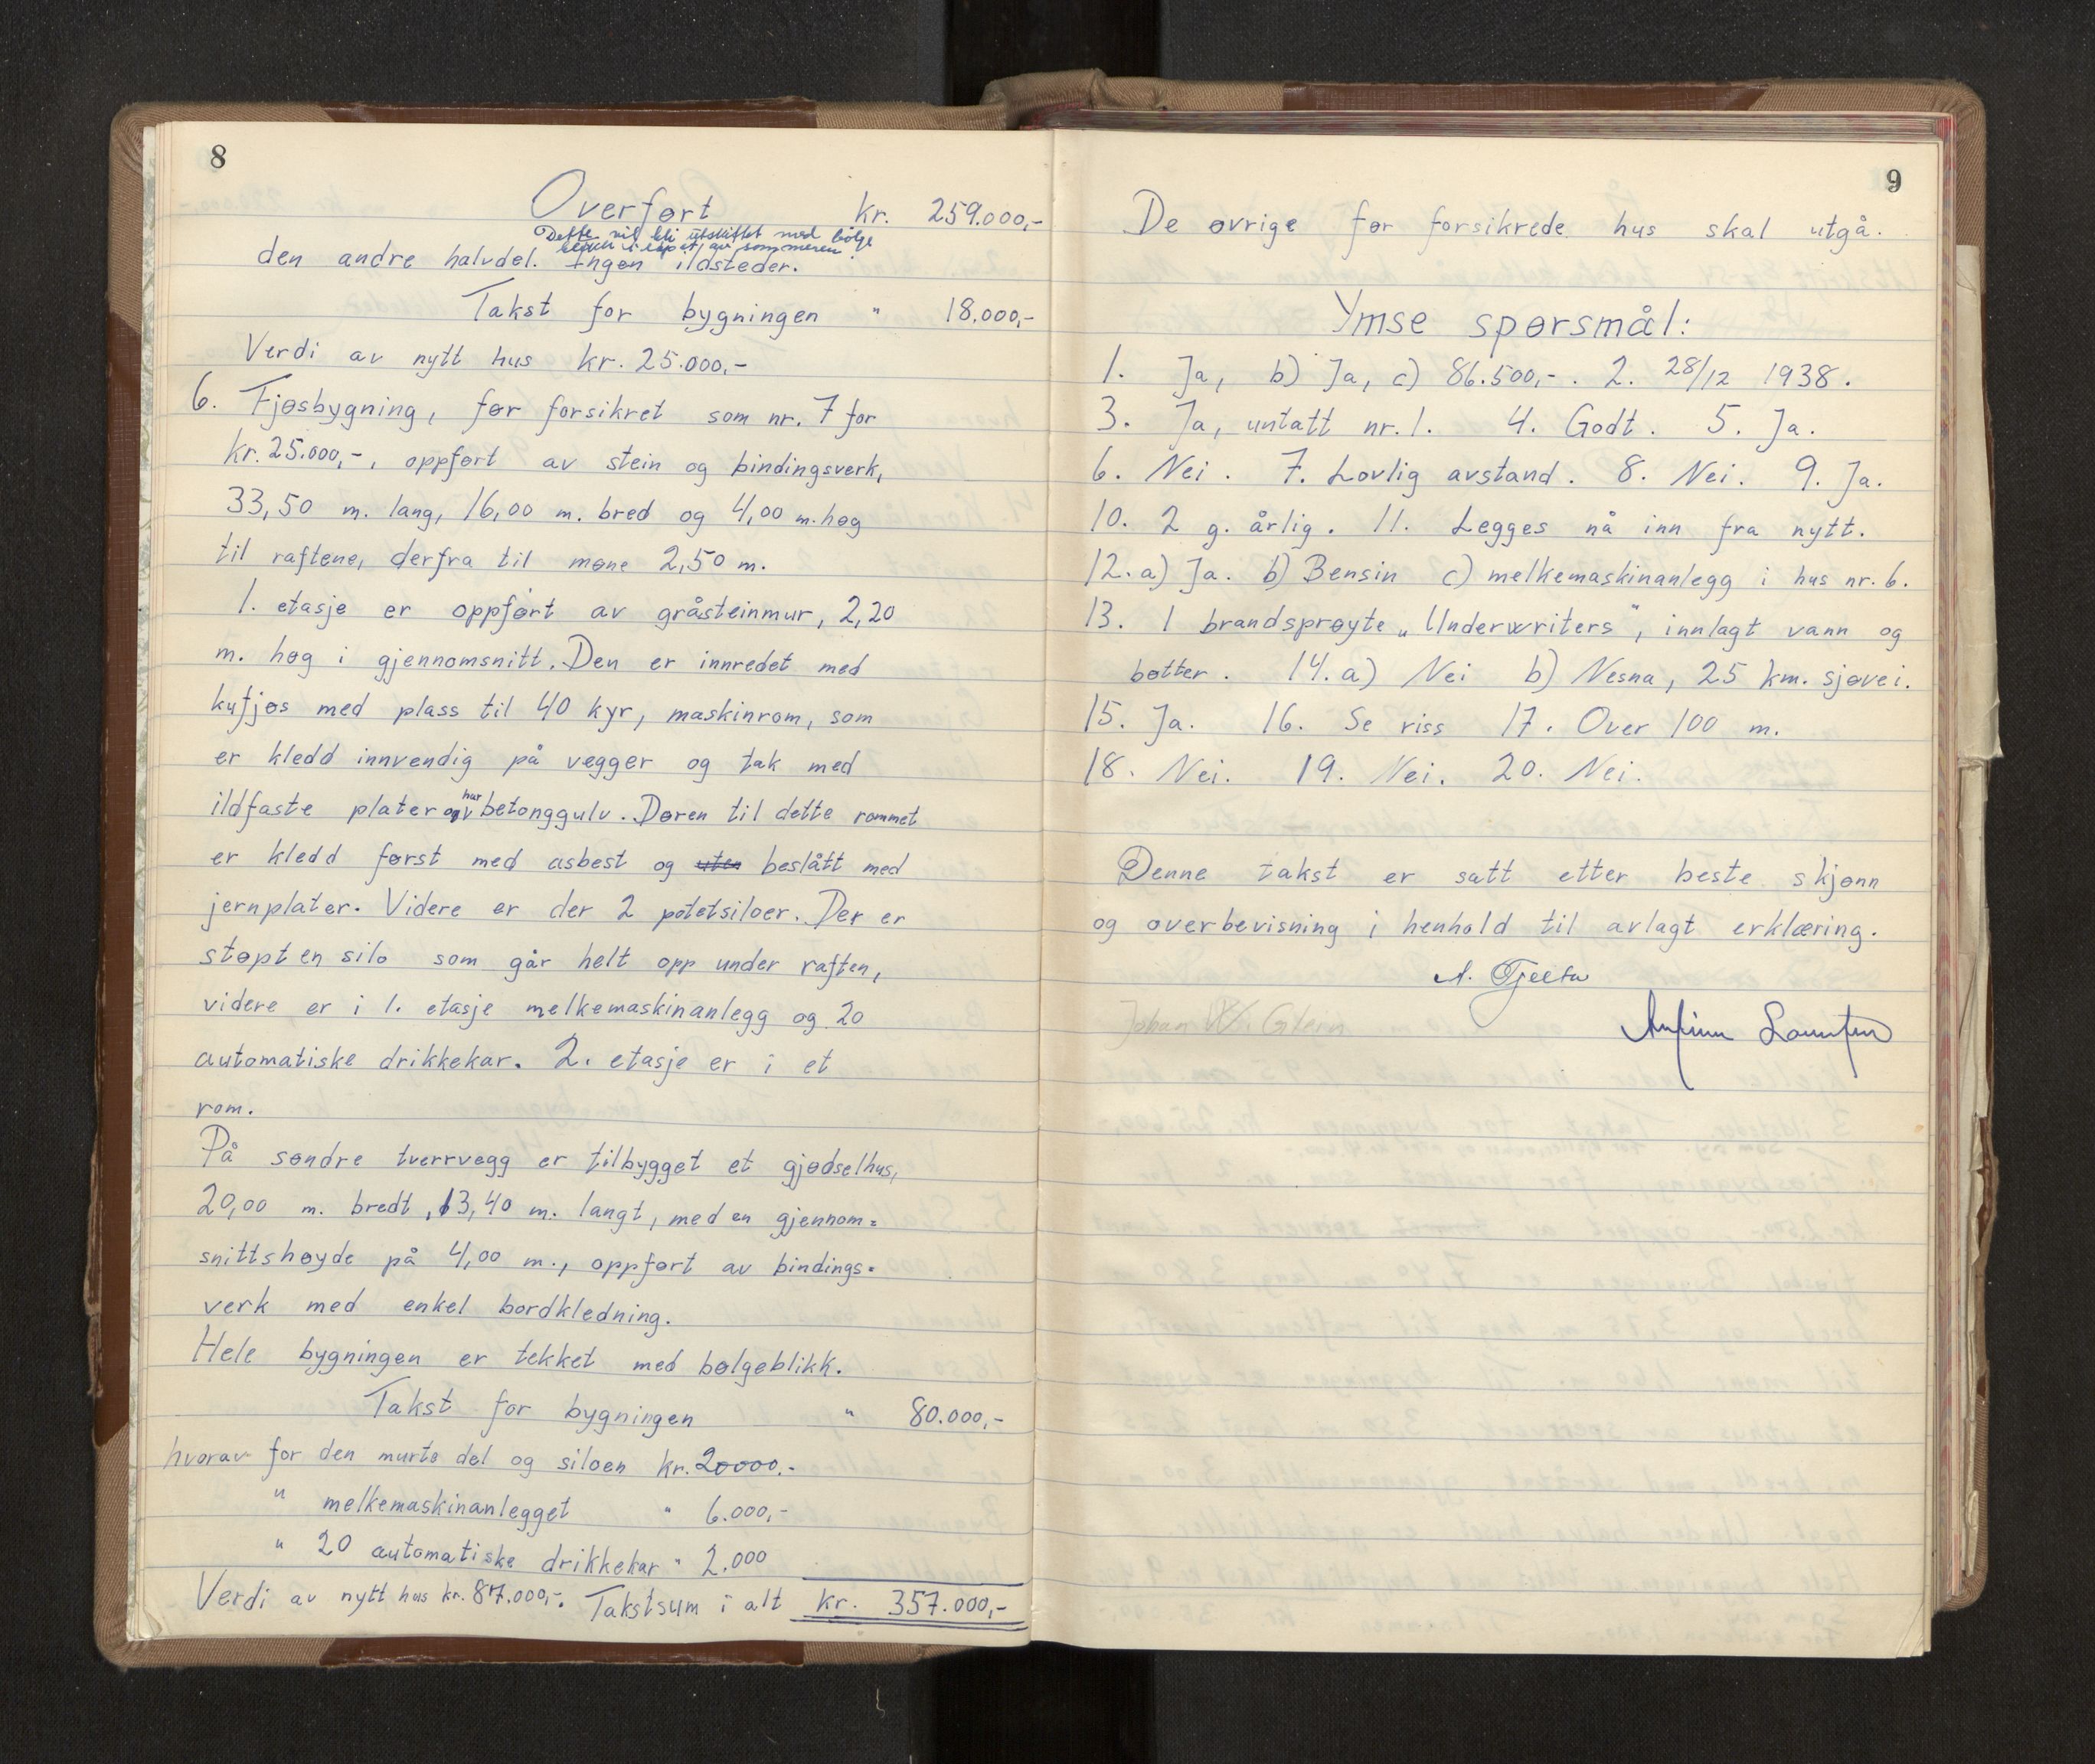 8
Overført kr. 259.000,-
Dette vil bli utskiftet med bølge
blikk i løpet av sommeren.
den andre halvdel. Ingen ildsteder.
Takst for bygningen " 18.000,-
Verdi av nytt hus kr. 25.000,-
6. Fjøsbygning, før forsikret som nr. 7 for
kr. 25.000,-, oppført av stein og bindingsverk,
33,50 m. lang, 16,00 m. bred og 4,00 m. høg
til raftene, derfra til møne 2,50 m.
1. etasje er oppført av gråsteinmur, 2,20
m. høg i gjennomsnitt. Den er innredet med
kufjøs med plass til 40 kyr, maskinrom, som
er kledd innvendig på vegger og tak med
ildfaste plater og har betonggulv. Døren til dette rommet
er kledd først med asbest og uten beslått med
jernplater. Videre er der 2 potetsiloer. Der er
støpt en silo som går helt opp under raften,
videre er i 1. etasje melkemaskinanlegg og 20
automatiske drikkekar. 2. etasje er i et
rom.
På søndre tverrvegg er tilbygget et gjødselhus,
20,00 m. bredt, 13,40 m. langt, med en gjennom=
snittshøyde på 4,00 m., oppført av bindings=
verk med enkel bordkledning.
Hele bygningen er tekket med bølgeblikk.
Takst for bygningen " 80.000,-
hvorav for den murte del og siloen kr. 20000,-
" melkemaskinanlegget " 6.000,-
" 20 automatiske drikkekar " 2.000
Verdi av nytt hus kr. 87.000,-. Takstsum i alt kr. 357.000,-
9
De øvrige før forsikrede hus skal utgå.
Ymse spørsmål:
1. Ja, b) Ja, c) 86.500,-. 2. 28/12 1938.
3. Ja, untatt nr. 1. 4. Godt. 5. Ja.
6. Nei. 7. Lovlig avstand. 8. Nei. 9. Ja.
10. 2 g. årlig. 11. Legges nå inn fra nytt.
12. a) Ja. b) Bensin c) melkemaskinanlegg i hus nr. 6.
13. 1 brandsprøyte „Underwriters", innlagt vann og
bøtter. 14. a) Nei b) Nesna, 25 km. sjøvei.
15. Ja. 16. Se riss 17. Over 100 m.
18. Nei. 19. Nei. 20. Nei.
Denne takst er satt etter beste skjønn
og overbevisning i henhold til avlagt erklæring.
A.
Johan